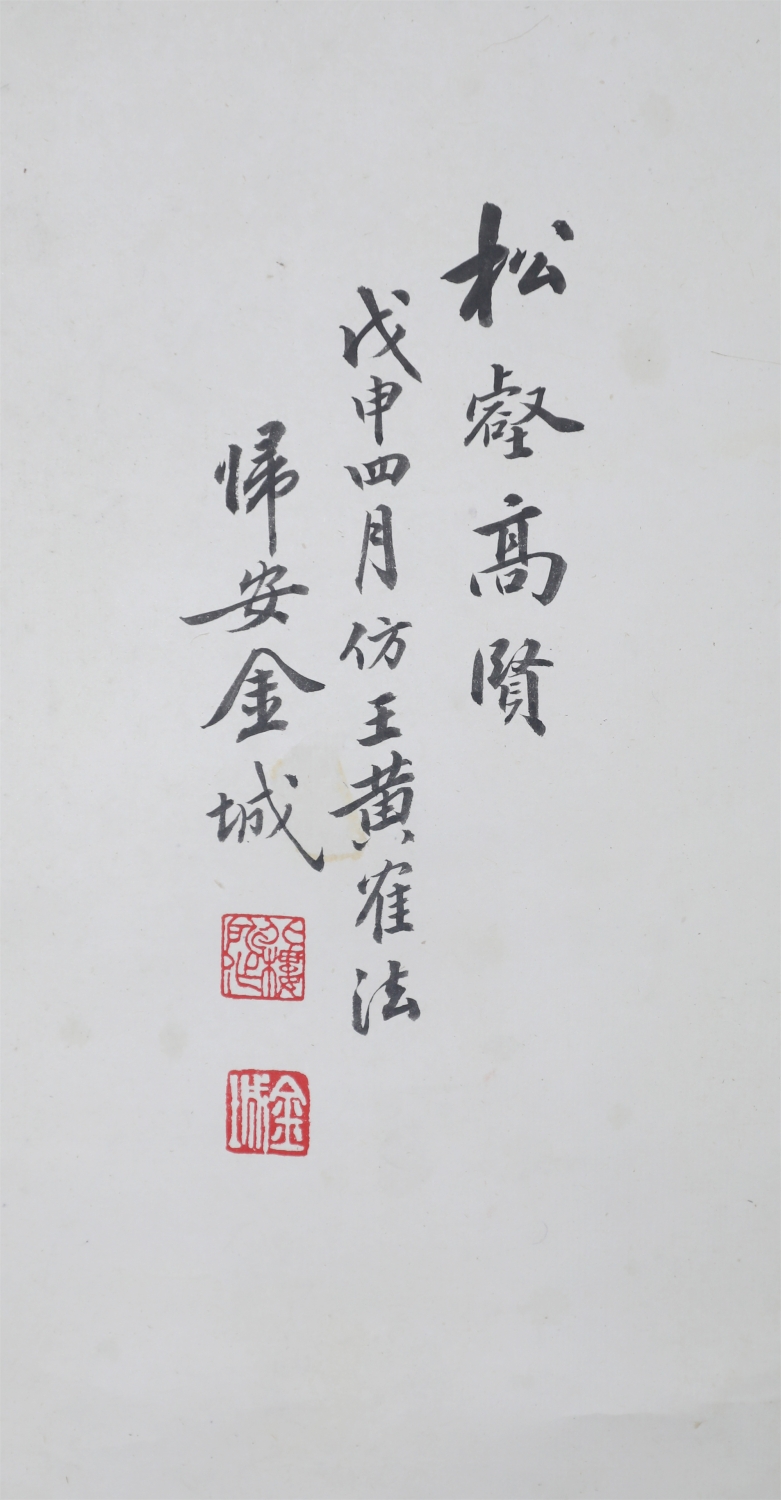 松壑高賢
戊申四月仿王黄雀法
帰安金城
金城